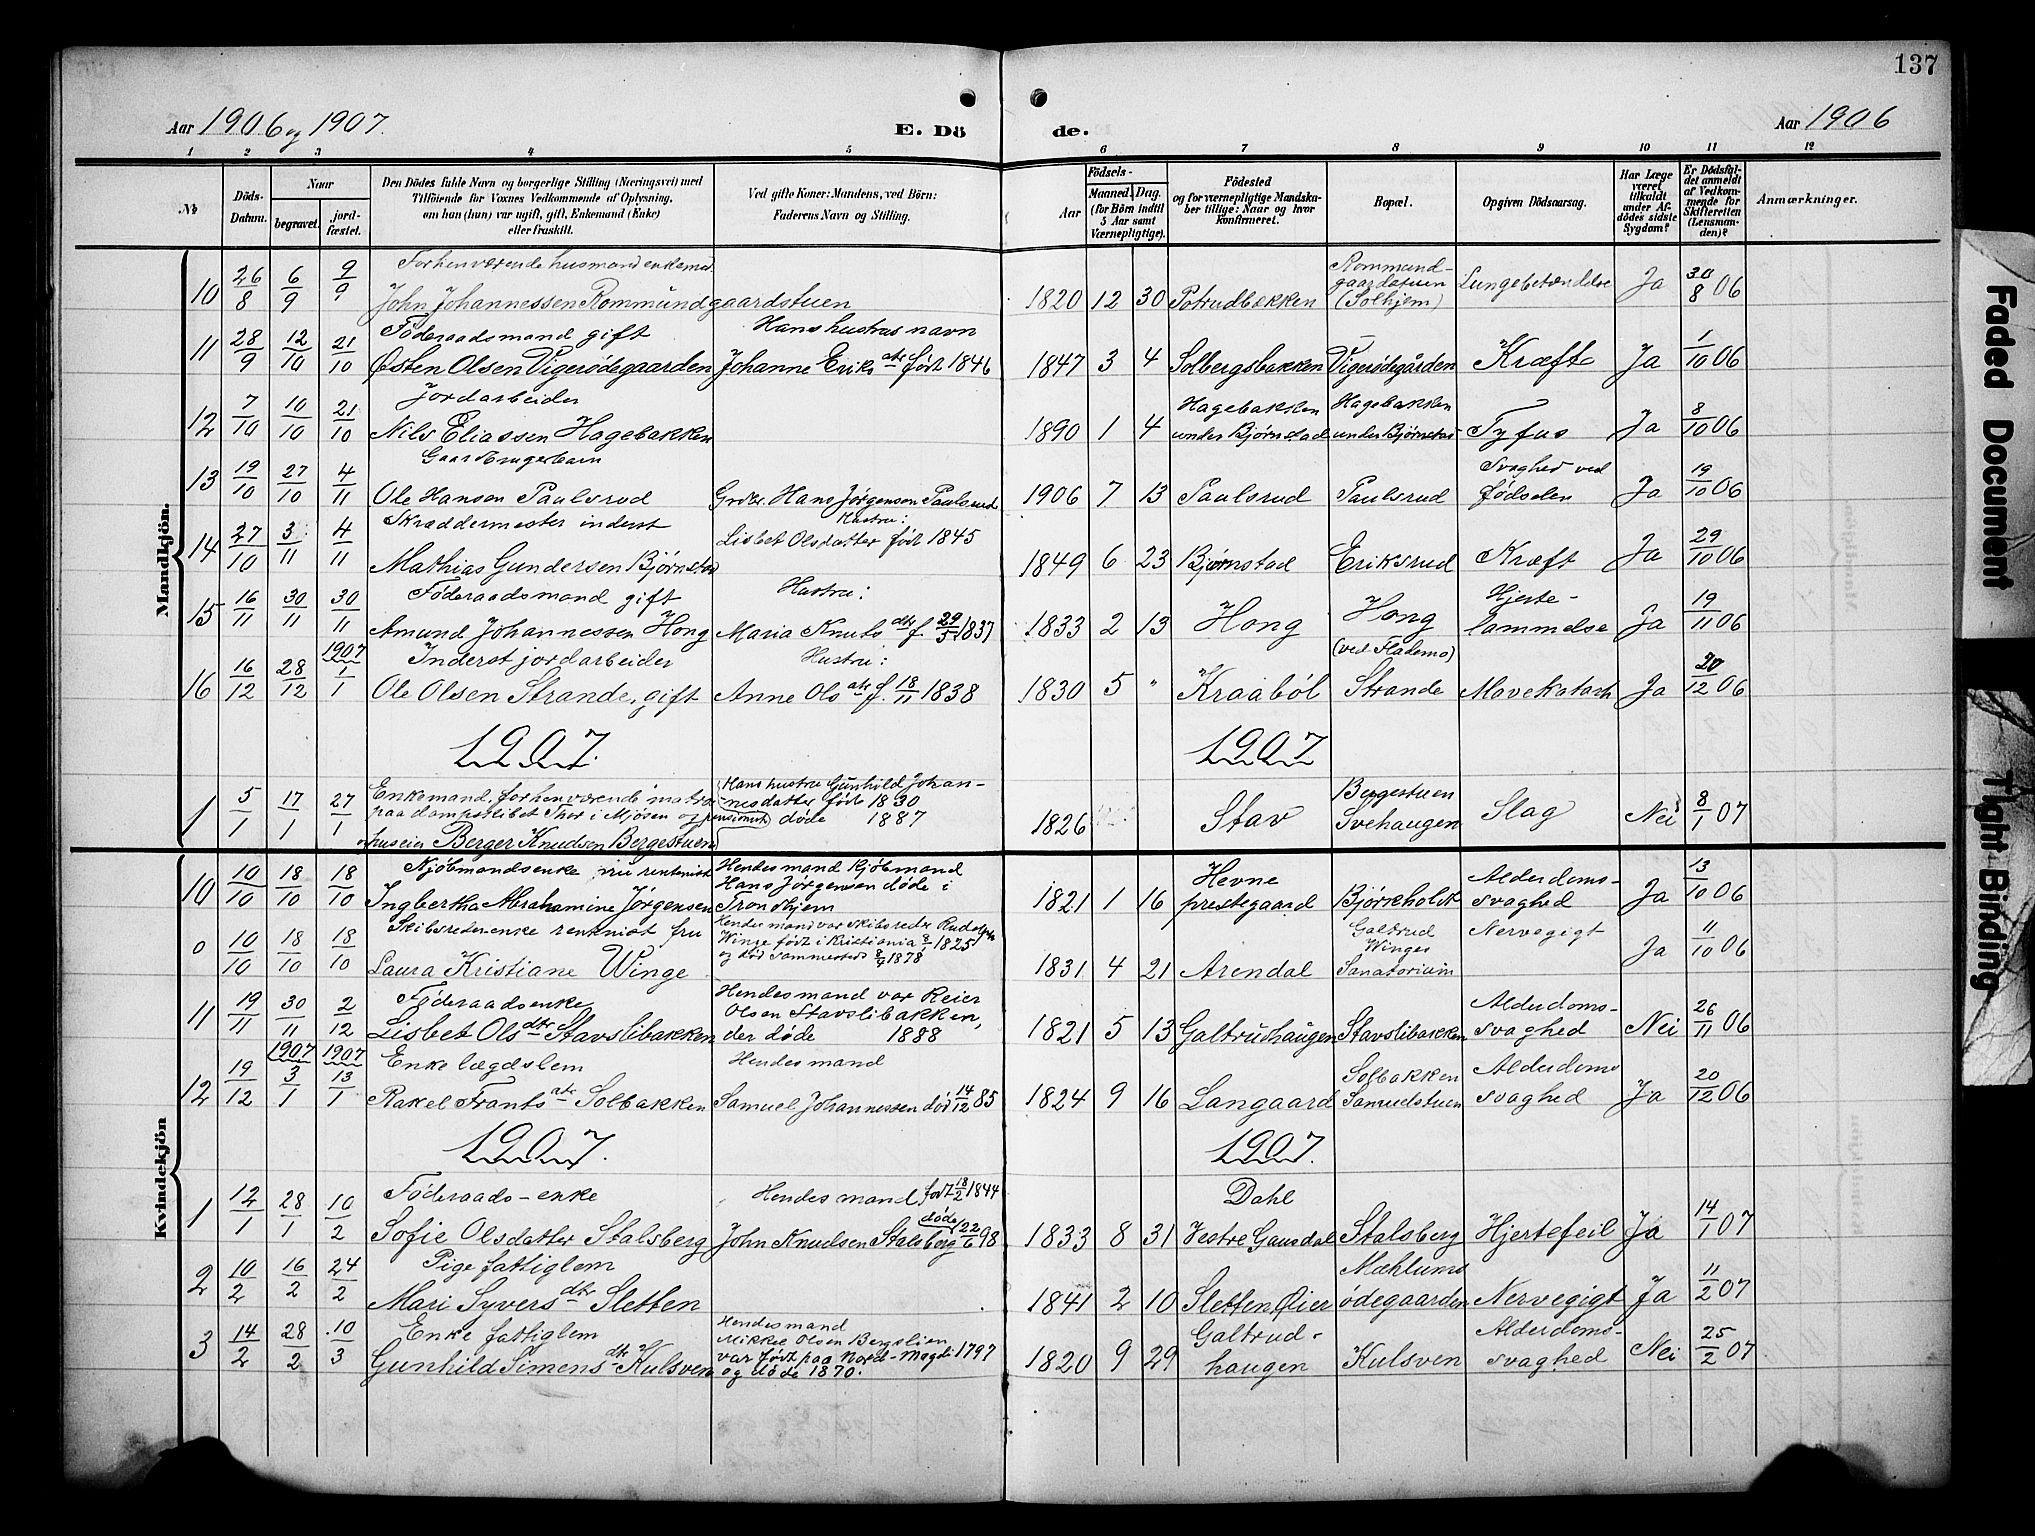 137
Aar 1906 og 1907.
E. Dö
de.
Aar 1906
1 2 3 4 5 6 7 8 9 10 11 12
№
Döds-Datum.
Naar
begravet.
jord-fæstet.
Den Dödes fulde Navn og borgerlige Stilling (Næringsvei) med
Tilföiende for Voxnes Vedkommende af Oplysning,
om han (hun) var ugift, gift, Enkemand (Enke)
eller fraskilt.
Ved gifte Koner: Mandens, ved Börn:
Faderens Navn og Stilling.
Födsels-
Aar
Maaned. Dag.
(for Börn indtil
5 Aar samt
Værnepligtige).
Födested
og for værnepligtige Mandska-
ber tillige: Naar og hvor
konfirmeret.
Bopæl.
Opgiven Dödsaarsag.
Har Læge
været
tilkaldt
under Af-
dödes sidste
Sygdom?
Er Dödsfal-
det anmeldt
af Vedkom-
mende for
Skifteretten
(Lensman-
den)?
Anmærkninger.
Mandkjön.
10 26/8 6/9 9/9 Forhenværende husmand enkemd.
John Johannessen Rommundgaardstuen 1820 12 30 Potrudbakken Rommund-
gaardstuen
(Solhjem) Lungebetændelse Ja 30/8 06
11 28/9 12/10 21/10 Føderaadsmand gift
Østen Olsen Vigerødegaarden Hans hustrus navn
Johanne Eriksdtr født 1846 1847 3 4 Solbergsbakken Vigerødegården Kræft Ja 1/10 06
12 7/10 10/10 21/10 Jordarbeider
Nils Eliassen Hagebakken 1890 1 4 Hagebakken
under Bjørnstad Hagebakken
under Bjørnstad Tyfus Ja 8/10 06
13 19/10 27/10 4/11 Gaardbrugerbarn
Ole Hansen Paulsrud Grdbr. Hans Jørgensen Paulsrud 1906 7 13 Paulsrud Paulsrud Svaghed ved
fødselen Ja 19/10 06
14 27/10 3/11 4/11 Skræddermester inderst
Mathias Gundersen Bjørnstad Hustru:
Lisbet Olsdatter født 1845 1849 6 23 Bjørnstad Eriksrud Kræft Ja 29/10 06
15 16/11 30/11 30/11 Føderaadsmand gift
Amund Johannessen Hong Hustru:
Maria Knutsdtr f. 29/5 1837 1833 2 13 Hong Hong
(ved Flademo) Hjerte-
lammelse Ja 19/11 06
16 16/12 28/12 1907 1/1 Inderst jordarbeider
Ole Olsen Strande, gift Hustru:
Anne Olsdtr f. 18/11 1838 1830 5 " Kraabøl Strande Mavekatarh Ja 20/12 06
1907. 1907
1 5/1 17/1 27/1 Enkemand, forhenværende matros
paa dampskibet Thor i Mjøsen og pensionist
huseier Berger Knudsen Bergestuen Hans hustru Gunhild Johan-
nesdatter født 1830
døde 1887 1826 Stav Bergestuen
Svehaugen Slag Nei 8/1 07
Kvindekjön
10 10/10 18/10 18/10 Kjøbmandsenke, fru rentenist
Ingbertha Abrahamine Jørgensen Hendes mand Kjøbmand
Hans Jørgensen døde i
Trondhjem 1821 1 16 Hevne
prestegaard Bjørkeholdt Alderdoms-
svaghed Ja 13/10 06
0 10/10 18/10 18/10 Skibsrederenke rentenist fru
Laura Kristiane Winge Hendes mand var Skibsreder Rudolph
Winge født i Kristiania 8/1 1825
og død sammesteds 8/9 1878 1831 4 21 Arendal Galtrud
Winges
Sanatorium Nervegigt Ja 11/10 06
11 19/11 30/11 2/12 Føderaadsenke
Lisbet Olsdtr Stavslibakken Hendes mand var Reier
Olsen Stavslibakken,
der døde 1888 1821 5 13 Galtrudhaugen Stavslibakken Alderdoms-
svaghed Nei 26/11 06
12 19/12 1907 3/1 1907 13/1 Enke lægdslem
Rakel Frantsdtr Solbakken Hendes mand
Samuel Johannessen død 14/12 85 1824 9 16 Langaard Solbakken
Samuelstuen Alderdoms
svaghed Ja 20/12 06
1907. 1907.
1 12/1 28/1 10/2 Føderaads-enke
Sofie Olsdatter Stalsberg Hendes mand født 18/2 1844
John Knudsen Stalsberg døde 22/6 98 1833 8 31 Dahl
Vestre Gausdal Stalsberg Hjertefeil Ja 14/1 07
2 10/2 16/2 24/2 Pige fattiglem
Mari Syversdtr Sletten 1841 2 10 Sletten Øier Mæhlums
ødegaarden Nervegigt Ja 11/2 07
3 14/2 28/2 10/3 Enke fattiglem
Gunhild Simensdtr Kulsven Hendes mand
Mikkel Olsen Bergslien
var født paa Nord-Magdi 1797
og døde 1870. 1820 9 29 Galtrud-
haugen Kulsven Alderdoms-
svaghed Nei 25/2 07
Faded Document
Tight Binding